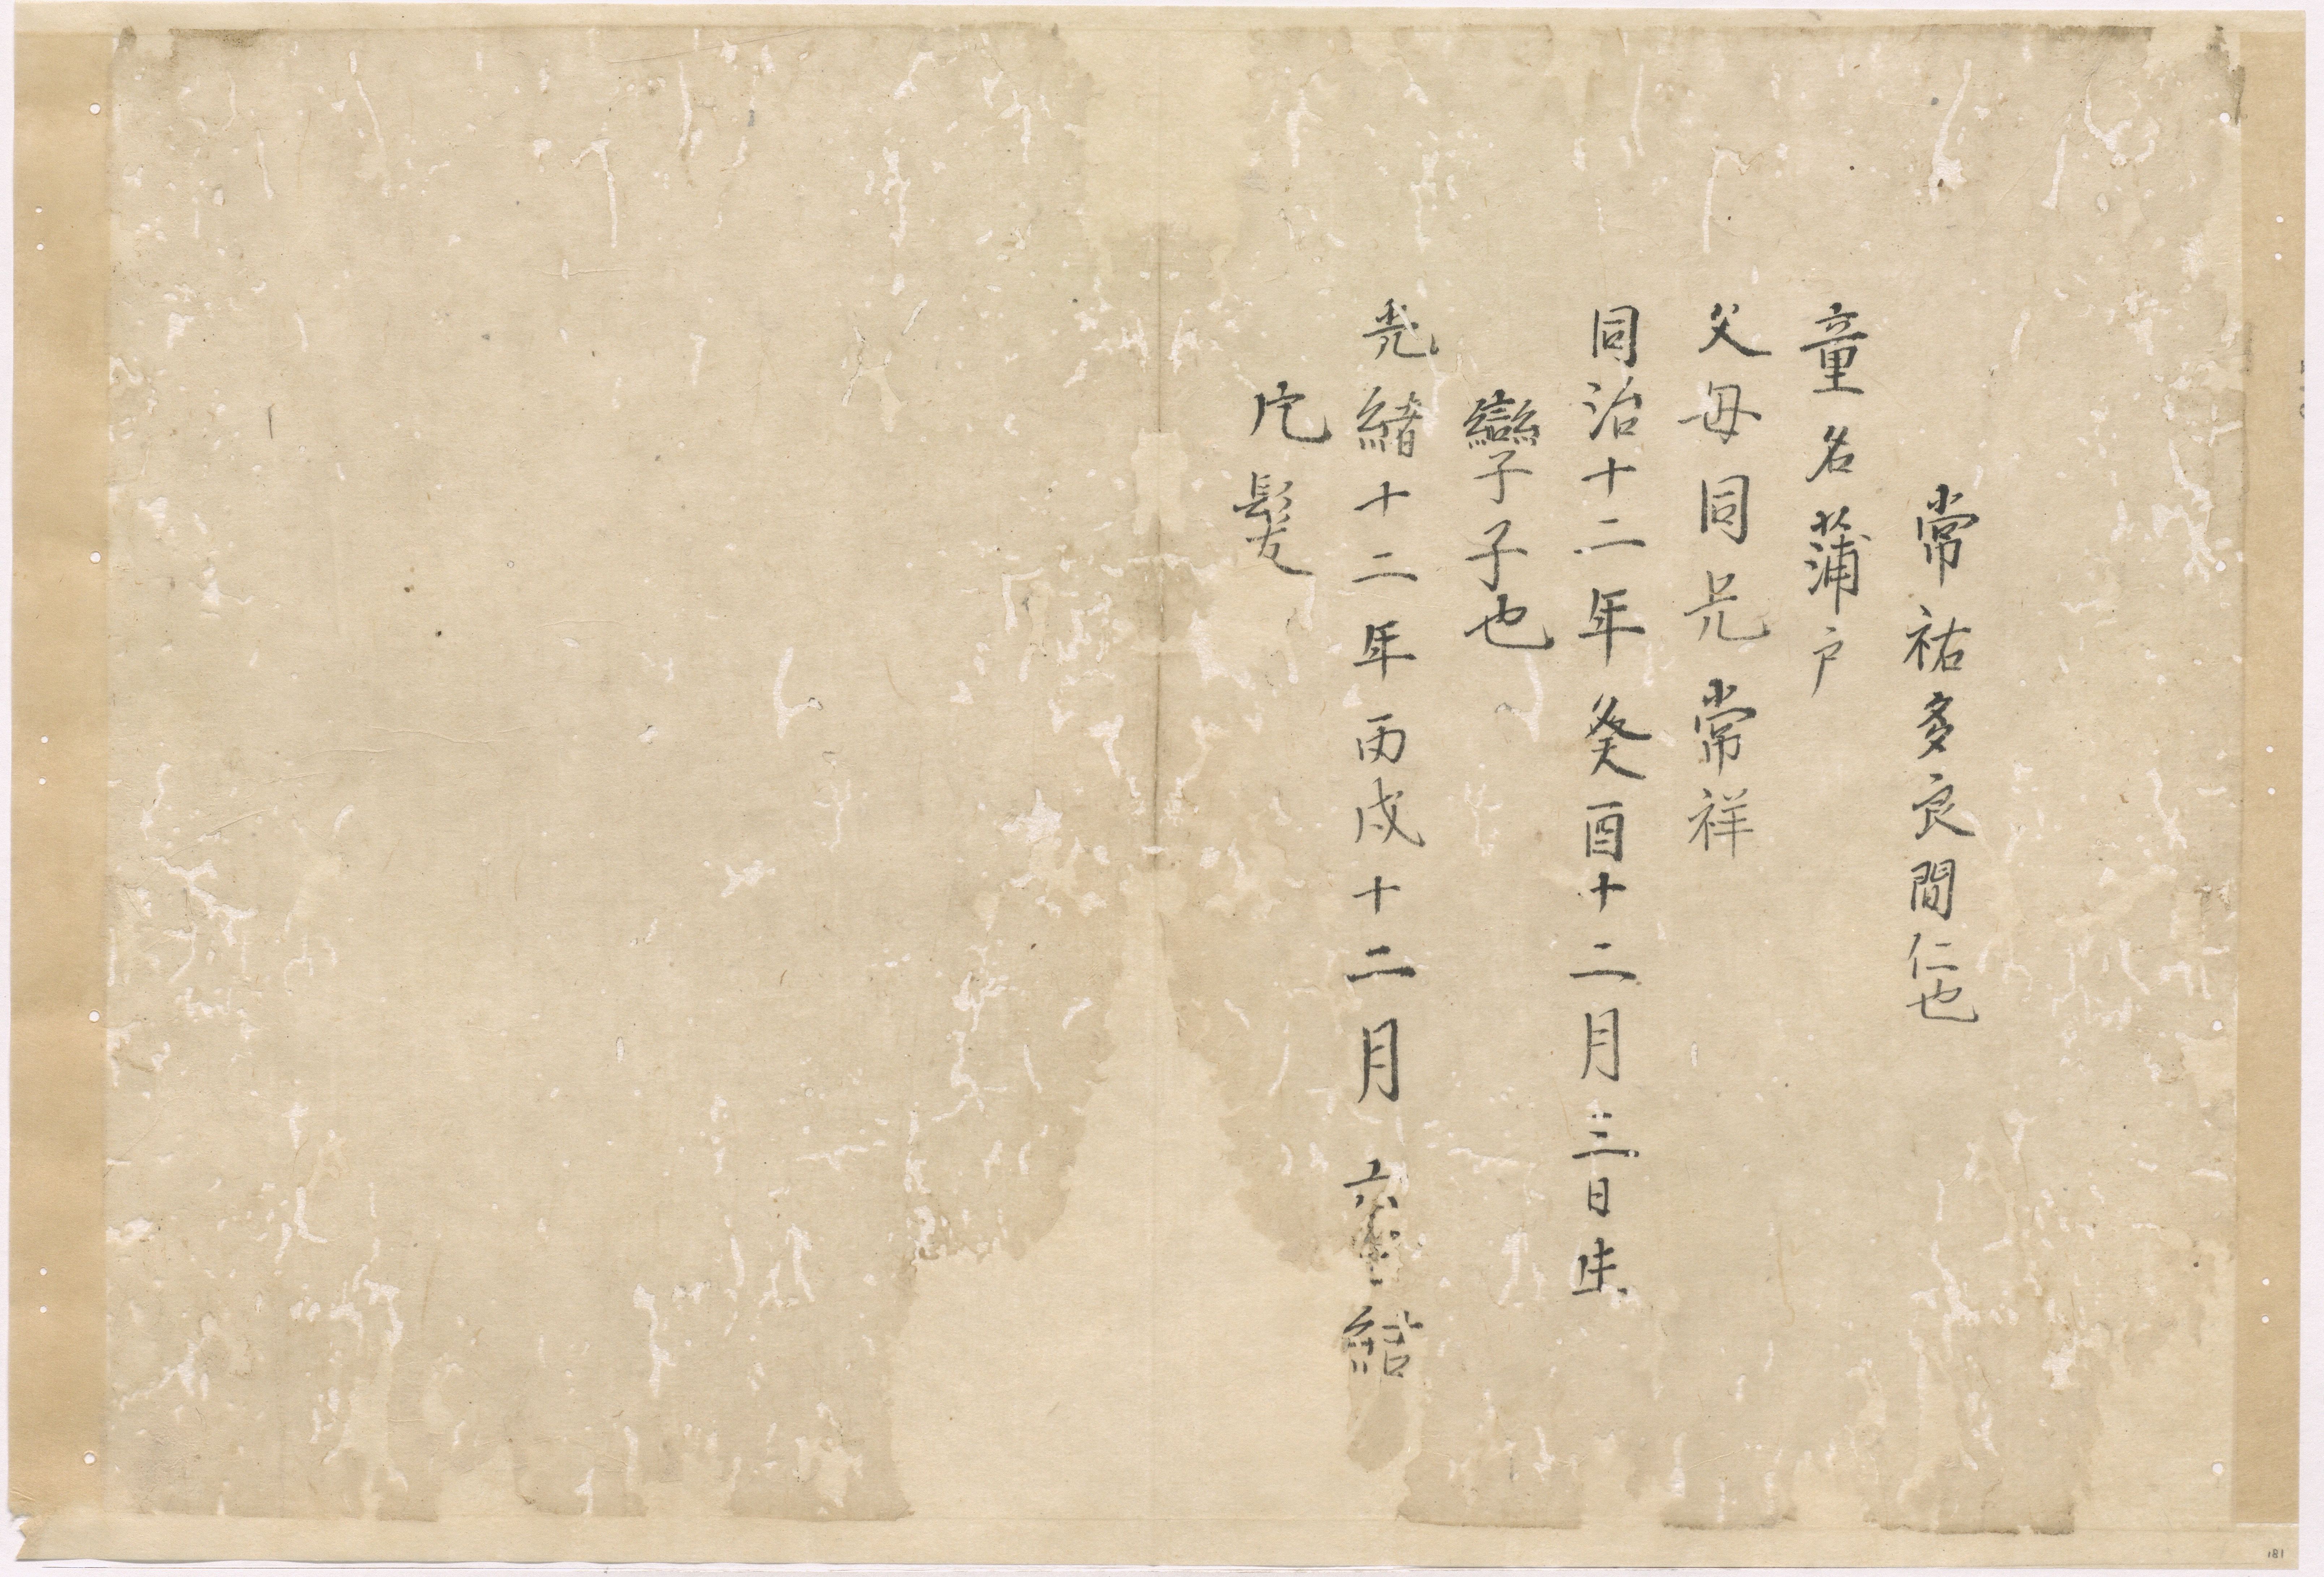 常祐多良間仁也
童名蒲戸
父母同兄常祥
同治十二年癸酉十二月三日生
孿子子也
光緒十二年丙戌十二月六 結
片髪
181